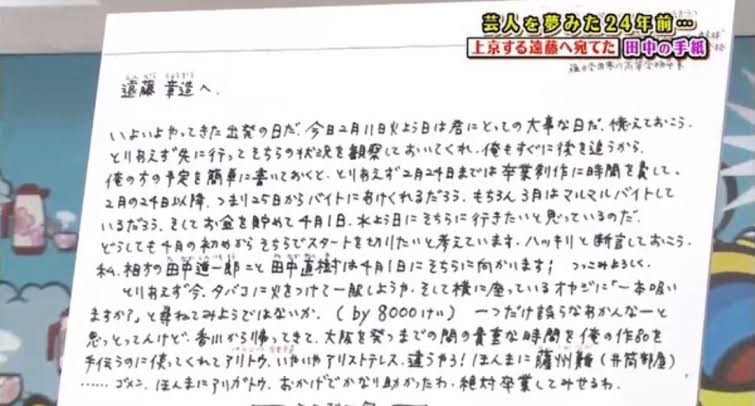 芸人を夢みた24年前…
上京する遠藤へ宛てた 田中の手紙
遠藤 章造へ.
いよいよやってきた出発の日だ. 今日2月11日火よう日は君にとっての大事な日だ. 憶えておこう.
とりあえず先に行ってそちらの状況を観察しておいてくれ. 俺もすぐに後を追うから.
俺の方の予定を簡単に書いておくと、とりあえず2月24日までは卒業制作に時間を費して、
2月の24日以降、つまり25日からバイトにあけくれるだろう. もちろん3月はマルマルバイトして
いるだろう. そしてお金を貯めて4月1日. 水よう日にそちらに行きたいと思っているのだ.
どうしても4月の初めからそちらでスタートを切りたいと考えています. ハッキリと断言しておこう.
私. 相方の田中進一郎こと 田中直樹は4月1日にそちらに向かいます! つっこみよろしく.
とりあえず今、タバコに火をつけて一服しようか. そして横に座っているオヤジに「一本吸い
ますか?」と尋ねてみようではないか. (by 8000けい) 一つだけ誤らなおかんなーと
思っとってんけど. 香川から帰ってきて、大阪を発つまでの間の貴重な時間を俺の作品を
手伝うのに使ってくれてアリトウ. いやいやアリストテレス. 違うやろ! ほんまに薩州難 (井筒部屋)
…… ゴメン. ほんまにアリガトウ. おかげでかなり助かったわ. 絶対卒業してみせるわ.